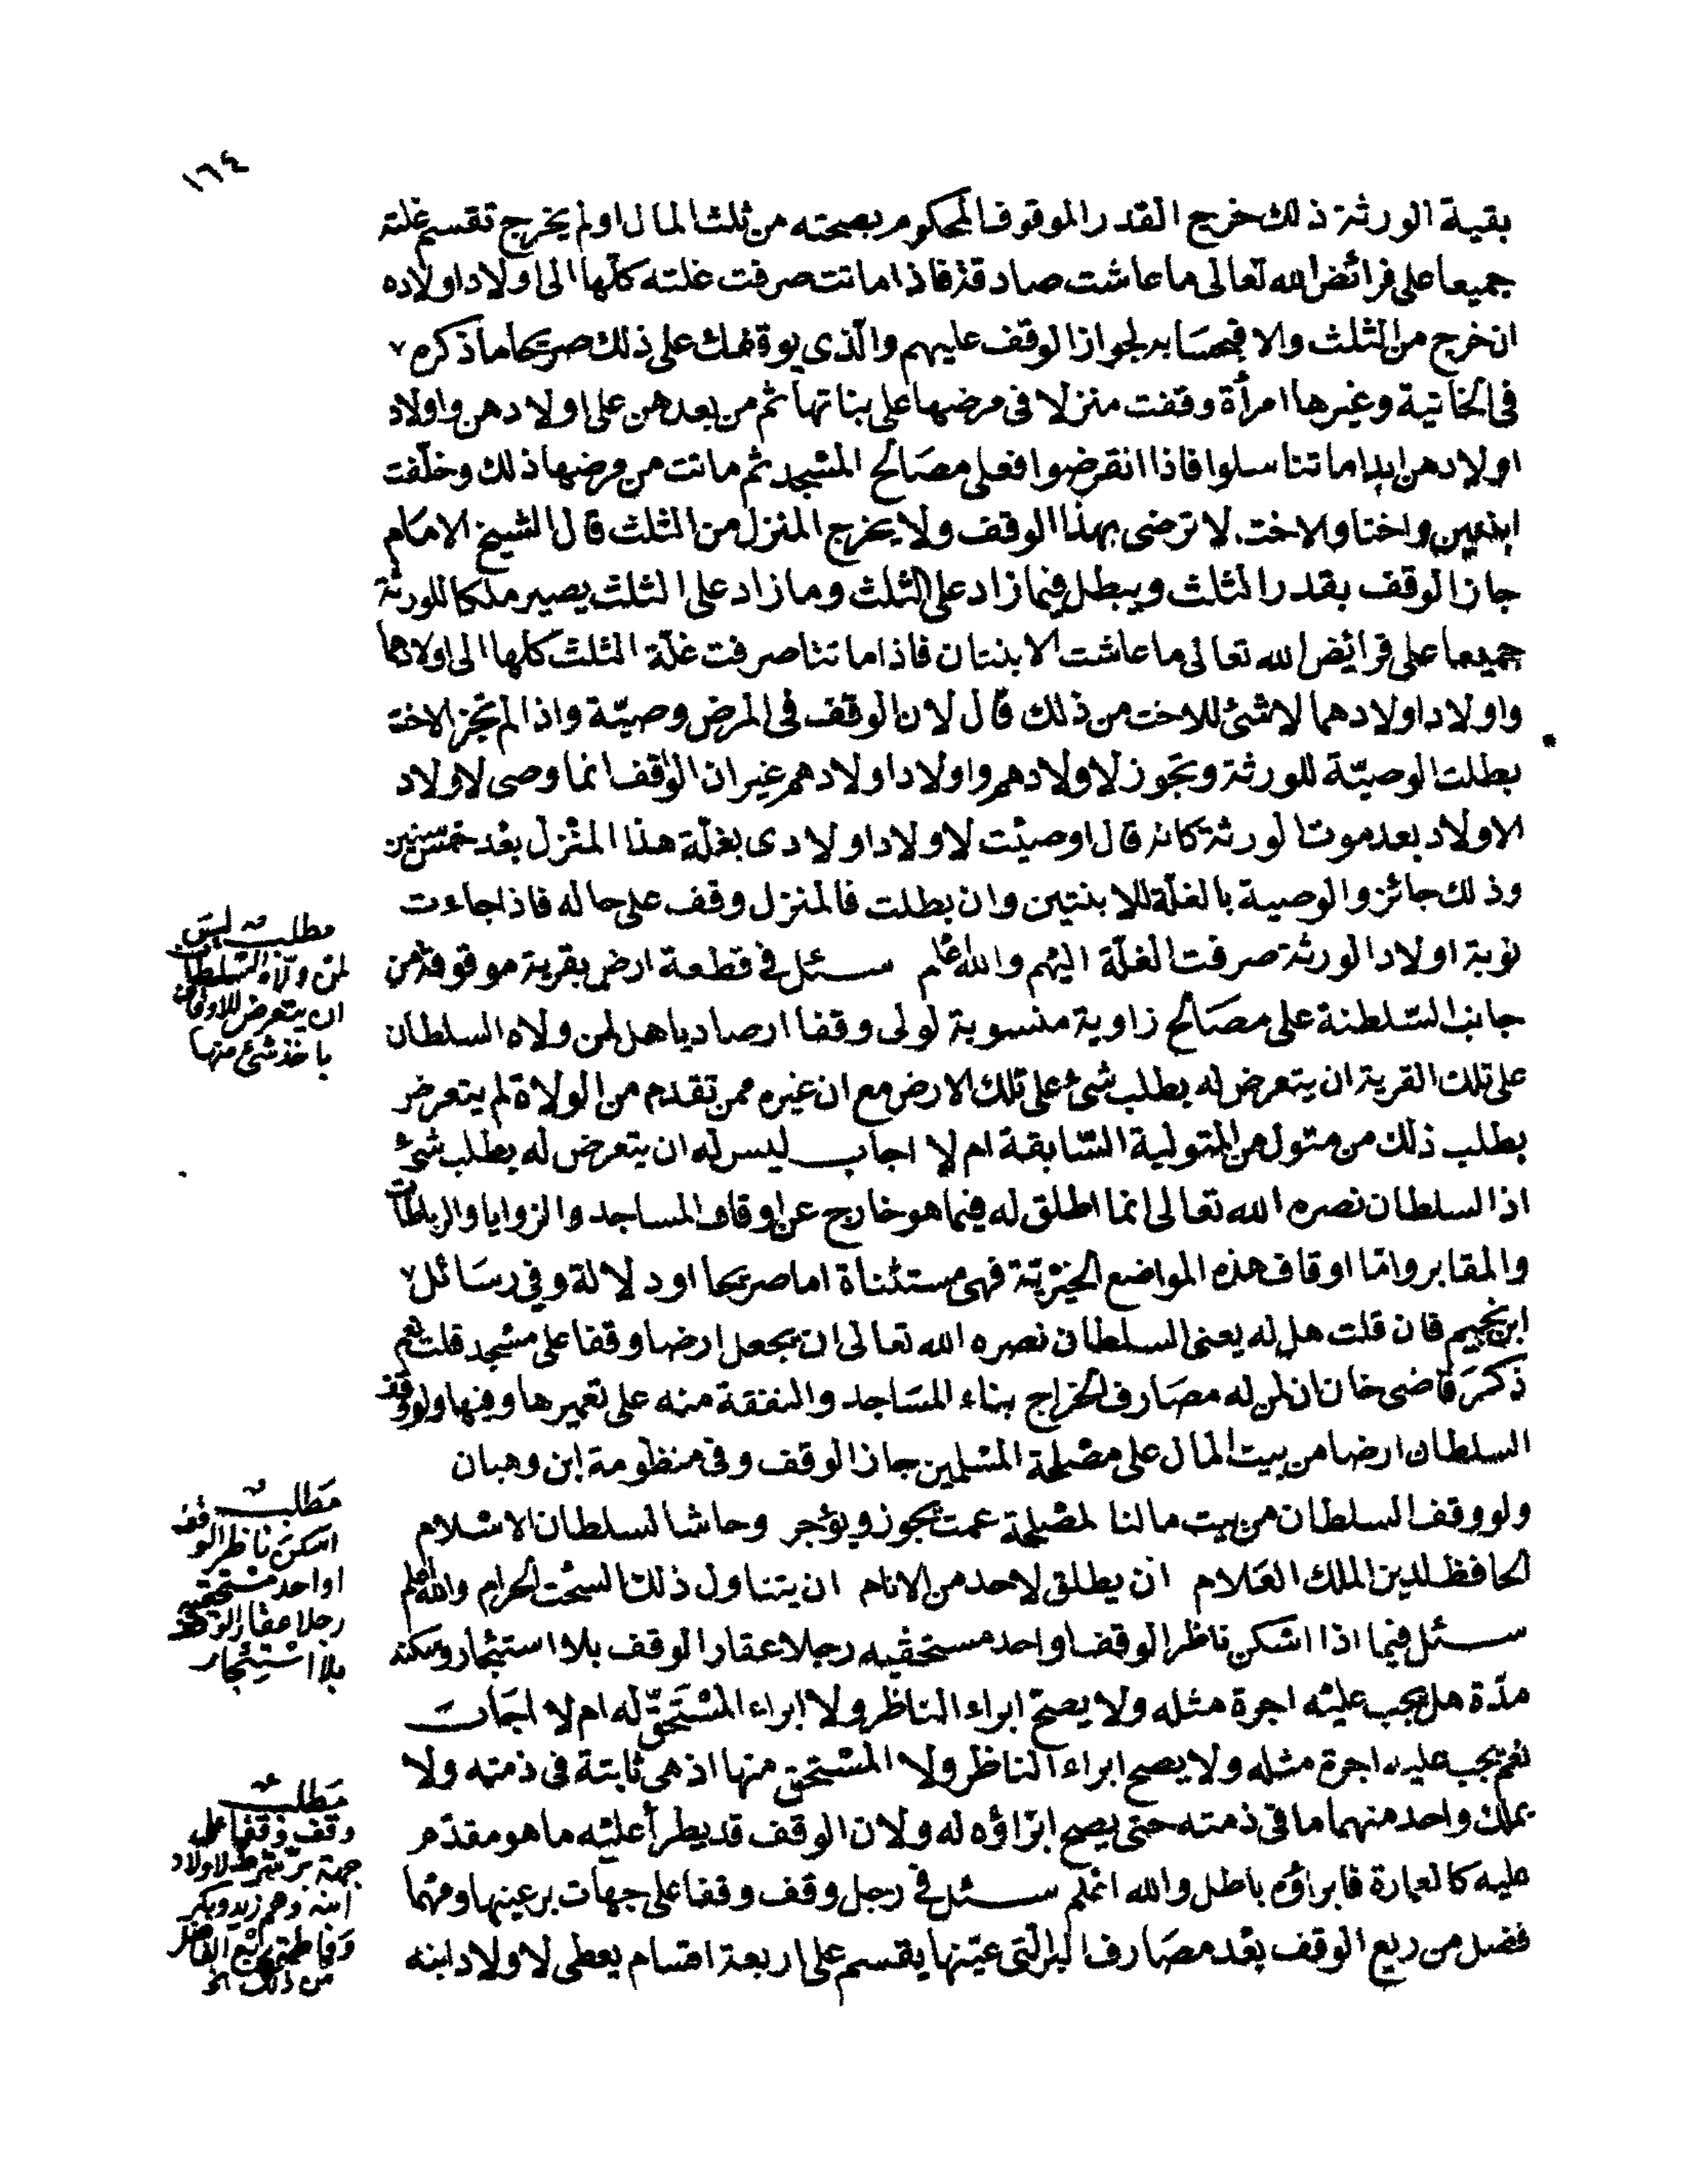 ١٦٤
بقية الورثة ذلك خرج القدر الموقوف المحكوم بصحته من ثلث المال اولم يخرج تقسم غلته
جميعا على فرائض الله تعالى ما عاشت صادقة فاذا ماتت صرفت غلته كلها الى اولاد اولاده
ان خرج من الثلث والا فبحسابه لجواز الوقف عليهم والذي يوقفك على ذلك صريحا ما ذكره
في الخانية وغيرها امرأة وقفت منزلا في مرضها على بناتها ثم من بعدهن على اولادهن واولاد
اولادهن ابدا ما تناسلوا فاذا انقرضوا فعلى مصالح المسجد ثم ماتت من مرضها ذلك وخلفت
ابنتين واختا والاخت لا ترضى بهذا الوقف ولا يخرج المنزل من الثلث قال الشيخ الامام
جاز الوقف بقدر الثلث ويبطل فيما زاد على الثلث وما زاد على الثلث يصير ملكا للورثة
جميعا على فرايض الله تعالى ما عاشت الابنتان فاذا ماتتا صرفت غلة الثلث كلها الى اولادهما
واولاد اولادهما لا شئ للاخت من ذلك قال لان الوقف في المرض وصية واذا لم تجز الاخت
بطلت الوصية للورثة وتجوز لاولادهم واولاد اولادهم غير ان الواقف انما وصى لاولاد
الاولاد بعد موت الورثة كانه قال اوصيت لاولاد اولادى بغلة هذا المنزل بعد خمس سنين
وذلك جائز والوصية بالغلة للابنتين وان بطلت فالمنزل وقف على حاله فاذا جاءت
نوبة اولاد الورثة صرفت الغلة اليهم والله اعلم سئل في قطعة ارض بقرية موقوفة من
جانب السلطنة على مصالح زاوية منسوبة لولى وقفا ارصاديا هل لمن ولاه السلطان
على تلك القرية ان يتعرض له بطلب شئ على تلك الارض مع ان غيره ممن تقدم من الولاة لم يتعرض
بطلب ذلك من متول من المتولية السابقة ام لا اجاب ليس له ان يتعرض له بطلب شئ
اذ السلطان نصره الله تعالى انما اطلق له فيما هو خارج عن اوقاف المساجد والزوايا والرباطات
والمقابر واما اوقاف هذه المواضع الخيرية فهى مستثناة اما صريحا او دلالة وفي رسائل
ابن نجيم فان قلت هل له يعنى السلطان نصره الله تعالى ان يجعل ارضا وقفا على مسجد قلت نعم
ذكر قاضى خان ان لمن له مصارف الخراج بناء المساجد والنفقة منه على تعميرها وفيها ولو وقف
السلطان ارضا من بيت المال على مصلحة المسلمين جاز الوقف وفي منظومة ابن وهبان
ولو وقف السلطان من بيت مالنا لمصلحة عمت يجوز ويؤجر وحاشا لسلطان الاسلام
الحافظ لدين الملك العلام ان يطلق لاحد من الانام ان يتناول ذلك السحت الحرام والله اعلم
سئل فيما اذا اسكن ناظر الوقف او احد مستحقيه رجلا عقار الوقف بلا استئجار وسكنه
مدة هل يجب عليه اجرة مثله ولا يصح ابراء الناظر ولا ابراء المستحق له ام لا اجاب
نعم يجب عليه اجرة مثله ولا يصح ابراء الناظر ولا المستحق منها اذ هى ثابتة في ذمته ولا
يملك واحد منهما ما في ذمته حتى يصح ابراؤه له ولان الوقف قد يطرأ عليه ما هو مقدم
عليه كالعمارة فابراؤه باطل والله اعلم سئل في رجل وقف وقفا على جهات بر عينها ومهما
فضل من ريع الوقف بعد مصارف البر التى عينها يقسم على اربعة اقسام يعطى لاولاد ابنه
مطلب ليس
لمن ولاه السلطان
ان يتعرض للاوقاف
باخذ شئ منها
مطلب
اسكن ناظر الوقف
او احد مستحقيه
رجلا عقار الوقف
بلا استئجار
مطلب
وقف وقفا على
جهة بر شرط لاولاد
ابنه وهم زيد وبكر
وفاطمة ربع الفاضل
من ذلك الخ